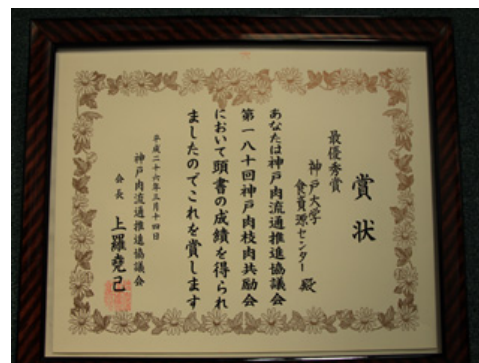 賞状
最優秀賞
神戸大学
食資源センター 殿
あなたは神戸肉流通推進協議会
第一八十回神戸肉枝肉共励会
において頭書の成績を得られ
ましたのでこれを賞します
平成二十六年三月十四日
神戸肉流通推進協議会
会長 上羅堯己